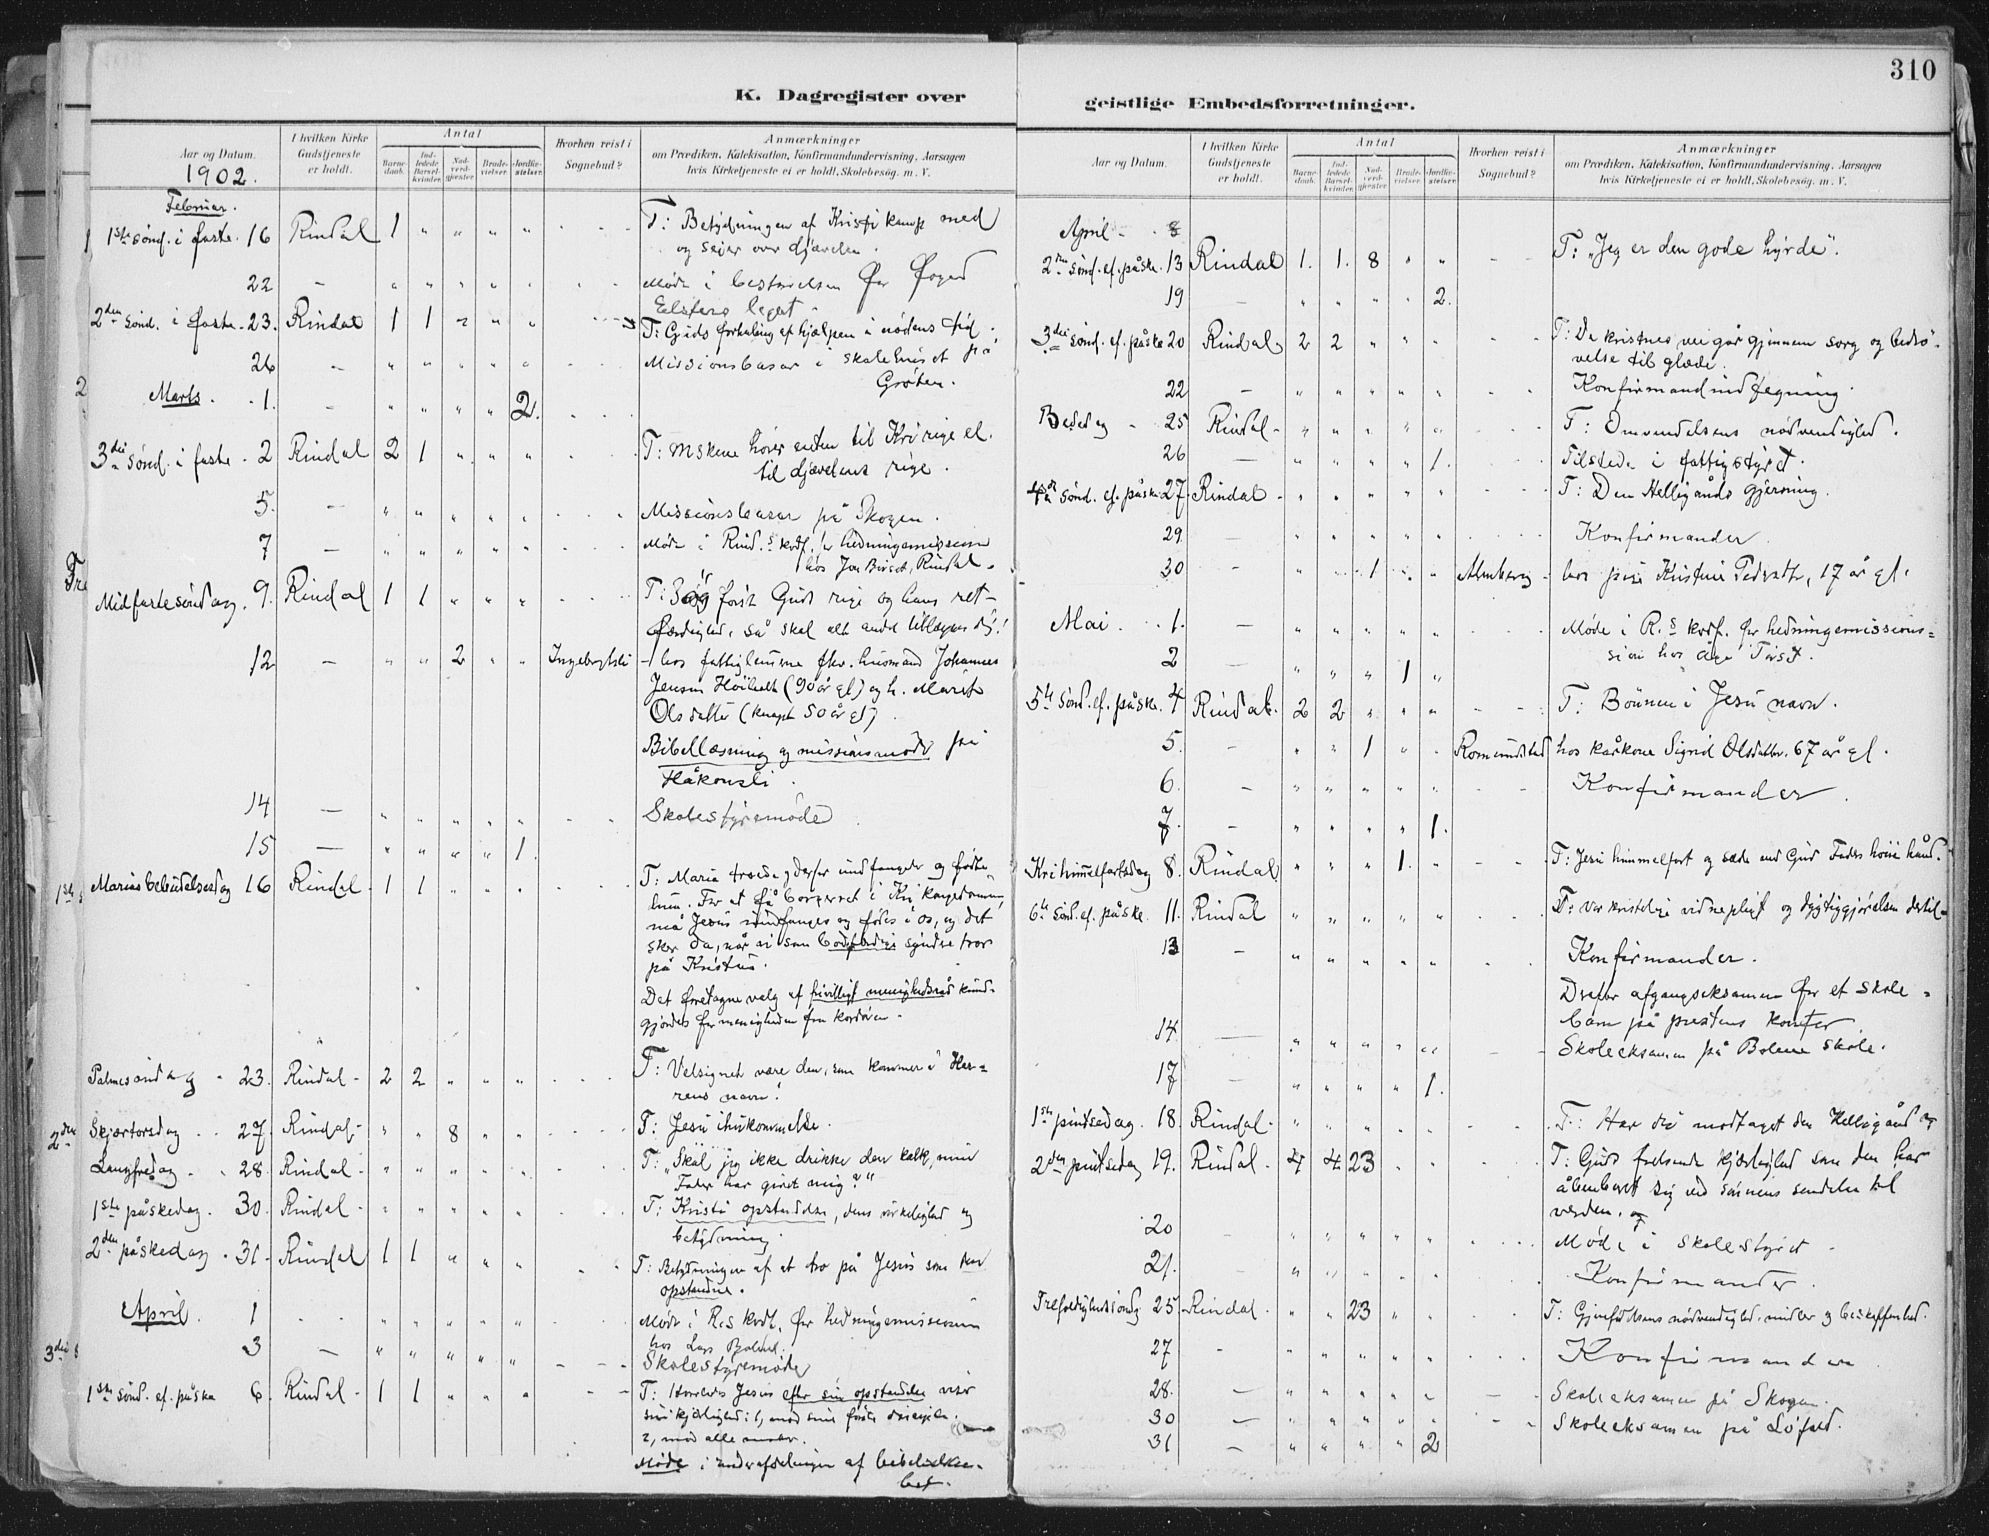 310
K. Dagregister over
geistlige Embedsforretninger.
Aar og Datum.
1902.
I hvilken Kirke Gudstjeneste er holdt.
Antal
Barnedaab.
Indledede Barselkvinder.
Nadverdgjæster.
Brudevielser.
Jordfæstelser.
Hvorhen reist i Sognebud?
Anmærkninger
om Prædiken, Katekisation, Konfirmandundervisning, Aarsagen
hvis Kirketjeneste ei er holdt, Skolebesøg. m. V.
Februar.
1ste sønd. i faste. 16 Rindal 1 " " " " T: Betydningen af Kristi kamp med
og seier over djævelen.
22 — " " " " " Møde i bestyrelsen for Foged
legat
2den sønd. i faste. 23. Rindal 1 1 " " " T: Guds forhaling af hjælpen i nødens tid.
26 — " " " " " Missionsbasar i skolehuset på
Grøten.
Marts. 1. — " " " " 2.
3die sønd. i faste. 2 Rindal 2 1 " " " T: Mskene hører enten til Kri rige el.
til djævelens rige.
5. — " " " " " Missionsbasar på Skogen.
7 — " " " " " Møde i Rind.s kvdf. for hedningemissionen
hos Jon Rindal.
Midfastesøndag. 9. Rindal 1 1 " " " T: Søg først Guds rige og hans ret-
færdighed, så skal alt andet tillægges dig!
12 — " " 2 " " Ingeborgsli - hos fattiglemmerne fhv. husmand Johannes
Jensen (90 år gl) og h. Marit
Olsdatter (knapt 50 år gl).
Bibellæsning og missionsmøde på
Håkonsli.
14 — " " " " " Skolestyremøde
15 — " " " " 1.
Mariæ bebudelsesdag 16 Rindal 1 1 " " " T: Maria troede, derfor undfanget og fødte
hun. For at få borgerret i Kri kongedømme,
må Jesus undfanges og føles i os, og det
sker da, når vi som bodfærdige syndere tror
på Kristus.
Det foretagne valg af frivilligt menighedsråd kund-
gjordes for menigheden fra kordøren.
Palmesøndag 23. Rindal 2 2 " " " T: Velsignet være den, som kommer i Her-
rens navn!
Skjærtorsdag 27. Rindal " " 8 " " T: Jesu ihukommelse.
Langfredag 28. Rindal " " " " " T: "Skal jeg ikke drikke den kalk, min
Fader har givet mig?"
1ste påskedag. 30. Rindal " " " " " T: Kristi opstandelse, dens virkelighed og
betydning.
2den påskedag. 31. Rindal 1 1 " " " T: Betydningen af at tro på Jesus som den
opstandne.
April. 1 " " " " " Møde i R.s kvdf. for hedningemissionen
hos Lars
3 — " " " " " Skolestyremøde
1ste sønd. ef. påske 6. Rindal 1 1 " " " T: Hvorledes Jesus efter sin opstandelse viser
sin kjærlighed: 1, mod sine første disciple.
2, mod alle
Møde i underafdelingen af bibelselska-
bet.
Aar og Datum.
I hvilken Kirke Gudstjeneste er holdt.
Antal
Barnedaab.
Indledede Barselkvinder.
Nadverdgjæster.
Brudevielser.
Jordfæstelser.
Hvorhen reist i Sognebud?
Anmærkninger
om Prædiken, Katekisation, Konfirmandundervisning, Aarsagen
hvis Kirketjeneste ei er holdt, Skolebesøg. m. V.
April 8
2den sønd. ef. påske. 13 Rindal 1. 1. 8 " " T: "Jeg er den gode hyrde".
19 — " " " " 2.
3die sønd. ef. påske 20 Rindal 2 2 " " " T: De kristnes vei går gjennem sorg og bedrø-
velse til glæde.
22 — " " " " " Konfirmandindtegning.
Bededag 25 Rindal " " " " " T: Omvendelsens nødvendighed.
26 — " " " " 1. Tilstede i fattigstyret.
4de sønd. ef. påske 27. Rindal " " " " " T: Den Helligånds gjerning.
29. — " " " " " Konfirmander.
30 — " " 1 " " hos pige Kristine 17 år gl.
Mai 1. — " " " " " Møde i R.s kvdf. for hedningemissions-
sion hos
2 — " " " 1 "
5te sønd. ef. påske. 4 Rindal 2 2 " " " T: Bønnen i Jesu navn.
5. — " " 1 " " Romundstad hos kårkone Sigrid Olsdatter, 67 år gl.
6. — " " " " " Konfirmander.
7. — " " " " 1.
Kri himmelfartsdag 8. Rindal " " " 1. " T: Jesu himmelfart og sæde ved Gud Faders høire hånd.
6te sønd. ef. påske. 11. Rindal " " " " " T: Vor kristelige vidnepligt og dygtiggjørelsen dertil.
13 — " " " " " Konfirmander.
Derefter afgangseksamen for et skole-
barn på prestens kontor.
14. — " " " " " Skoleeksamen på Bolme skole.
17 — " " " " 1.
1ste pintsedag. 18. Rindal " " " " " T: Har du modtaget den Helligånd og
2den pintsedag 19. Rindal 4 4 23 " " T: Guds frelsende kjærlighed som den har
åbenbaret sig ved sønnens sendelse til
verden.
20 " " " " " Møde i skolestyret.
21. — " " " " " Konfirmander.
Trefoldighedssøndg. 25. Rindal " " 23 " " T: Gjenfødelsens nødvendighed, midler og beskaffenhed.
27 — " " " " " Konfirmander.
28. — " " " " " Skoleeksamen på Skogen.
30 — " " " " " Skoleeksamen på Løfald.
31 — " " " " 2